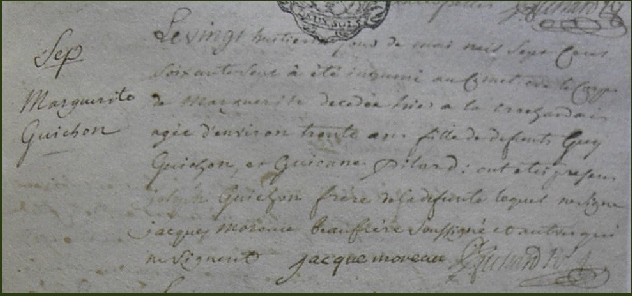 Sep
Marguerite
Guichon
Le vingt huitieme jour de mai mil sept cent
soixante sept a été inhumé au cimet. ore le corps
de Marguerite decedée hier a la
agée d'environ trente ans fille de defunts Guy
Guichon, et Guionne Pilard : ont etés presens
joseph Guichon frère de la defunte lequel ne signe
jacques moreau beaufrère soussigné et autres qui
ne signent jacque moreau